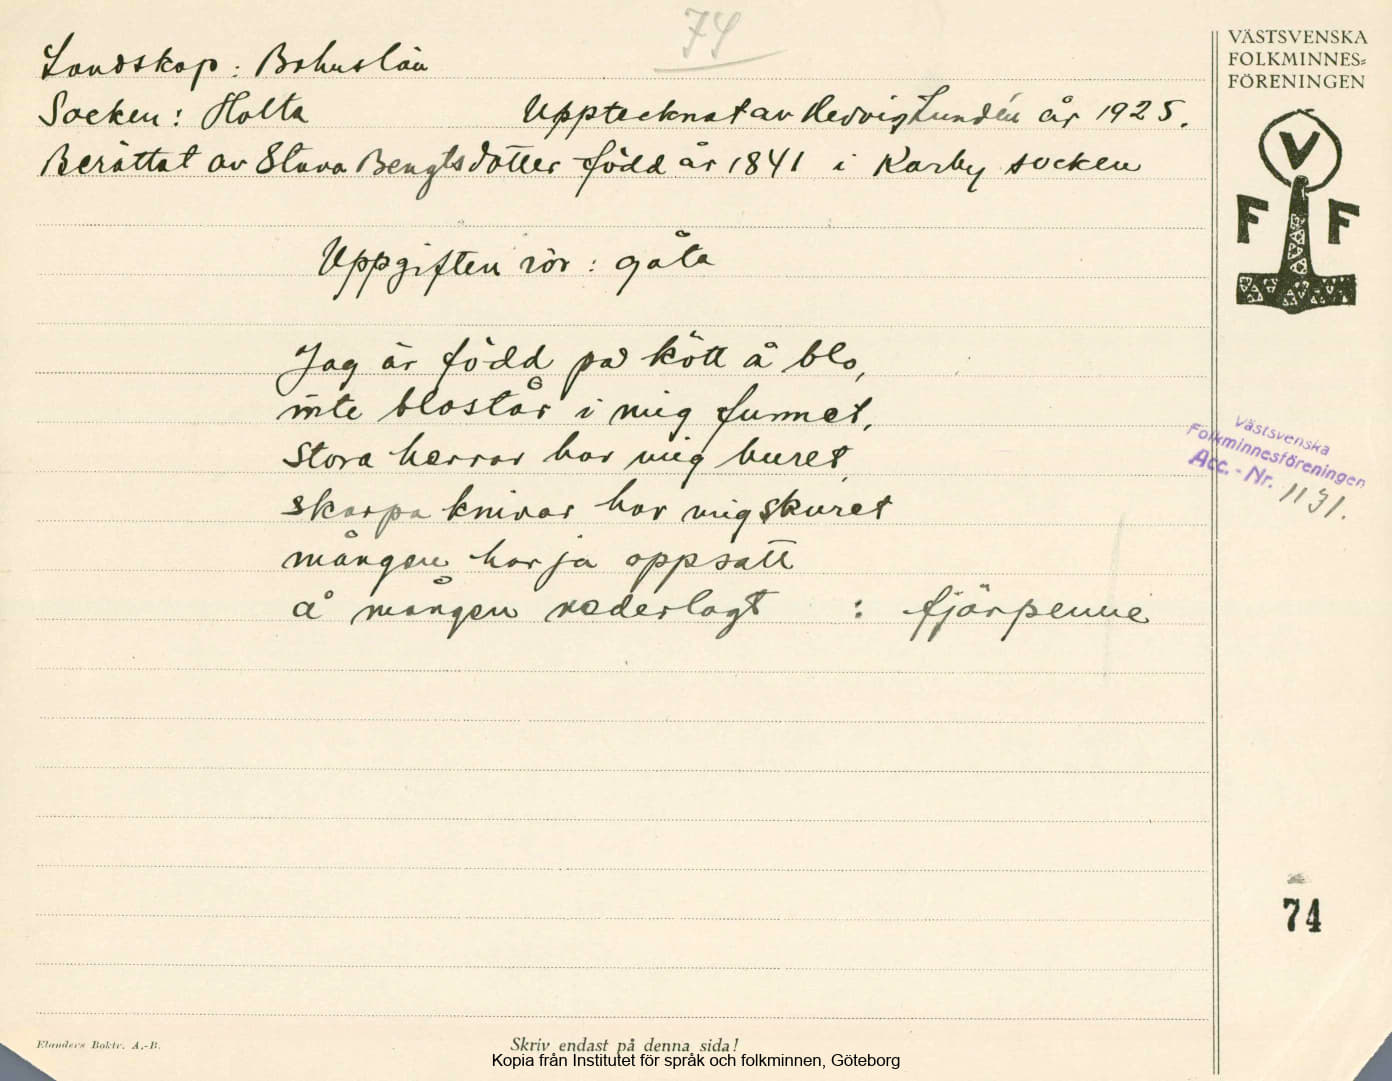 74
Landskap: Bohuslän
Socken: Holta Upptecknat av Hedvig Lundén år 1925.
Berättat av Stava Bengtsdotter född år 1841 i Karby socken
Uppgiften rör: gåta
Jag är född på kött å blo,
inte blostår i mig funnet,
stora herrar har mig buret,
skarpa knivar har mig skuret
mången har ja oppsatt
å mången nederlagt : fjärpenne
VÄSTSVENSKA
FOLKMINNES=
FÖRENINGEN
V
F F
Västsvenska
Folkminnesföreningen
Acc.-Nr. 1131.
74
Elanders Boktr. A.-B.
Skriv endast på denna sida!
Kopia från Institutet för språk och folkminnen, Göteborg